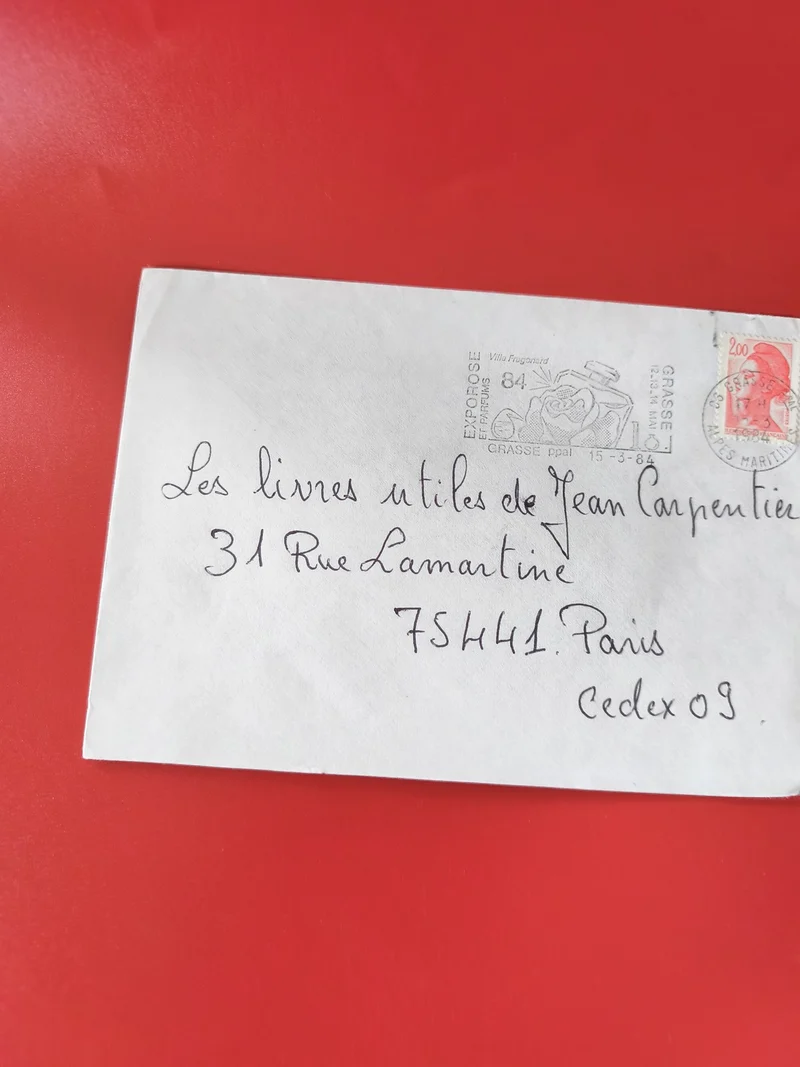 EXPOROSE
ET PARFUMS
Villa Fragonard
84
GRASSE
12_13_14 MAI
GRASSE ppal 15-3-84
2,00
06 GRASSE PPAL
17 H
1984
ALPES MARITIMES
Les livres utiles de Jean Carpentier
31 Rue Lamartine
75441. Paris
Cedex 09.